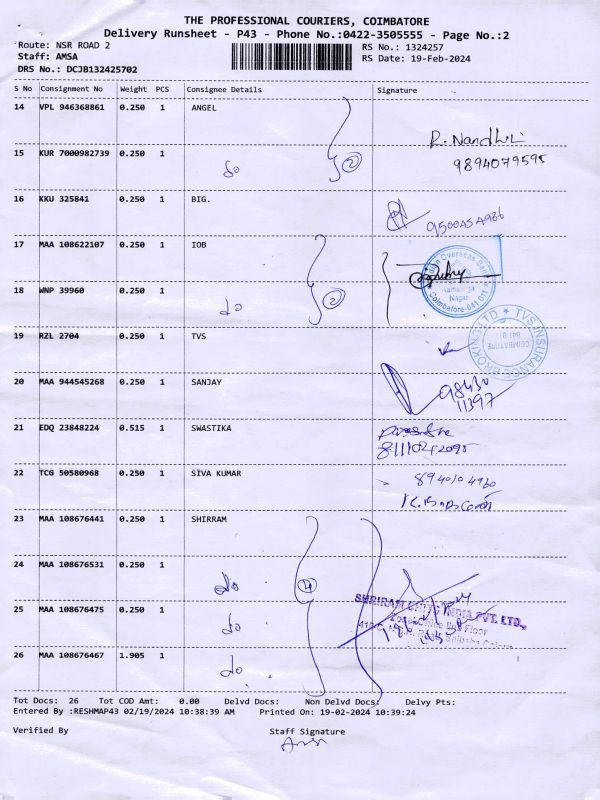 THE PROFESSIONAL COURIERS, COIMBATORE
Delivery Runsheet - P43 - Phone No.:0422-3505555 - Page No.:2
Route: NSR ROAD 2 RS No.: 1324257
Staff: AMSA RS Date: 19-Feb-2024
DRS No.: DCJB132425702
S No Consignment No Weight PCS Consignee Details Signature
14 VPL 946368861 0.250 1 ANGEL
R. Nandhi
15 KUR 7000982739 0.250 1 do 2 9894079595
16 KKU 325841 0.250 1 BIG.
17 MAA 108622107 0.250 1 IOB
18 WNP 39960 0.250 1 do 2
Coimbatore-641 011
19 RZL 2704 0.250 1 TVS
TVS INSURANCE BROKING LTD
COIMBATORE
20 MAA 944545268 0.250 1 SANJAY
98430
11397
21 EDQ 23848224 0.515 1 SWASTIKA
22 TCG 50580968 0.250 1 SIVA KUMAR 8940104960
23 MAA 108676441 0.250 1 SHIRRAM
24 MAA 108676531 0.250 1 do 4
SHRIRAM CHITS INDIA PVT. LTD.,
25 MAA 108676475 0.250 1 do
Floor
26 MAA 108676467 1.905 1 do
Tot Docs: 26 Tot COD Amt: 0.00 Delvd Docs: Non Delvd Docs: Delvy Pts:
Entered By :RESHMAP43 02/19/2024 10:38:39 AM Printed On: 19-02-2024 10:39:24
Verified By Staff Signature